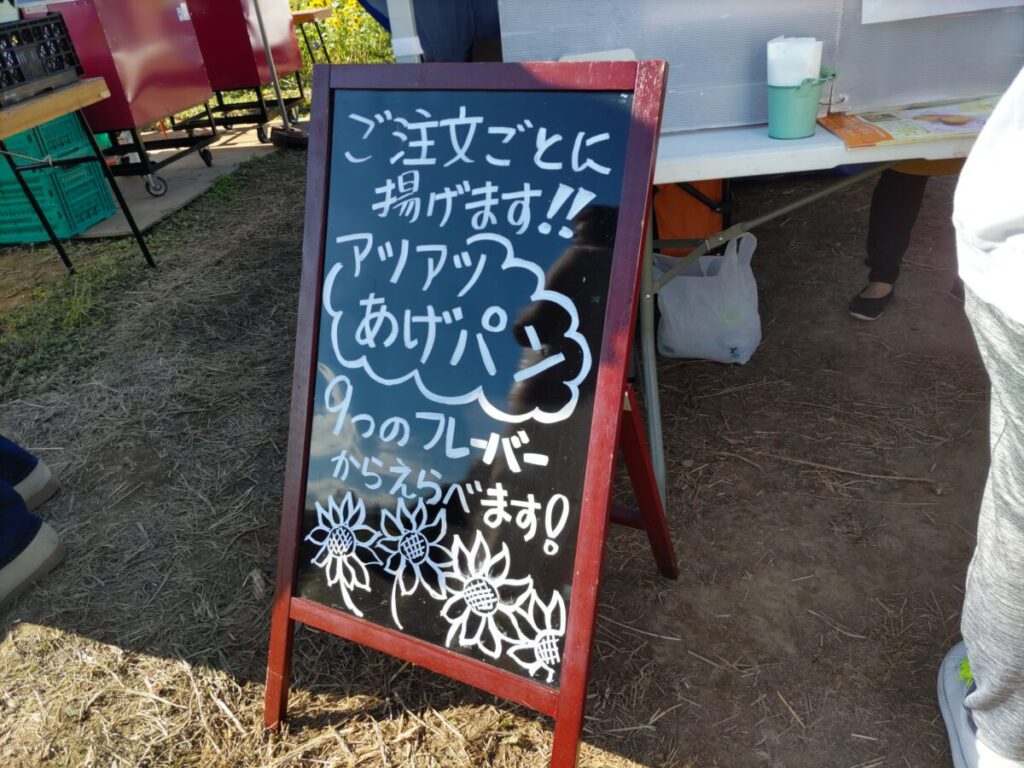 ご注文ごとに
揚げます!!
アツアツ
あげパン
9つのフレーバー
からえらべます!